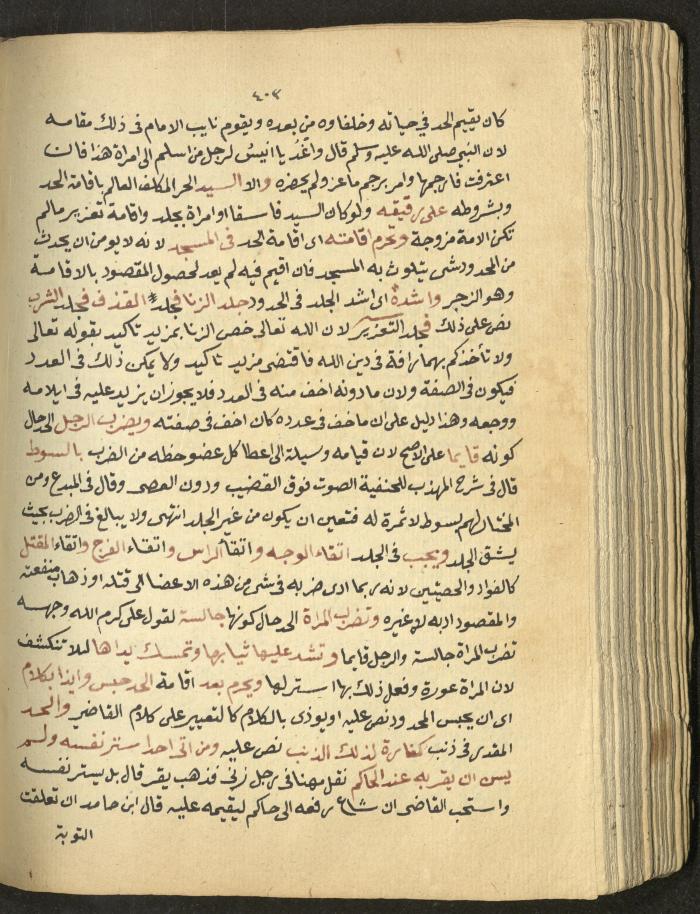 ٤٠٣
كان يقيم الحد في حياته وخلفاوه من بعده ويقوم نايب الامام في ذلك مقامه
لان النبي صلى الله عليه وسلم قال واغد يا انيس لرجل من اسلم الى امراة هذا فان
اعترفت فارجمها وامر برجم ماعز ولم يحضره والا السيد الحر المكلف العالم باقامة الحد
وبشروطه على رقيقه ولو كان السيد فاسقا او امراة بجلد واقامة تعزير مالم
تكن الامة مزوجة وتحرم اقامته اى اقامة الحد في المسجد لانه لا يومن ان يحدث
من المحدود شى يتلوث به المسجد فان اقيم فيه لم يعد لحصول المقصود بالاقامة
وهو الزجر واشده اى اشد الجلد في الحدود جلد الزنا فجلد القذف فجلد الشرب
نص على ذلك فجلد التعزير لان الله تعالى خص الزنا بمزيد تاكيد بقوله تعالى
ولا تأخذكم بهما رافة في دين الله فاقتضى مزيد تاكيد ولا يمكن ذلك في العدد
فيكون في الصفة ولان ما دونه اخف منه في العدد فلا يجوز ان يزيد عليه في ايلامه
ووجعه وهذا دليل على ان ما خف في عدده كان اخف في صفته ويضرب الرجل الحد حال
كونه قايما على الاصح لان قيامه وسيلة الى اعطا كل عضو حظه من الضرب بالسوط
قال في شرح المهذب للحنفية الصوت فوق القضيب ودون العصى وقال في المبدع ومن
المختار لهم بسوط لا ثمرة له فتعين ان يكون من غير الجلد انتهى ولا يبالغ في الضرب بحيث
يشق الجلد ويجب في الجلد اتقاء الوجه واتقاء الراس واتقاء الفرج واتقاء المقتل
كالفواد والخصيتين لانه ربما ادى ضربه في شى من هذه الاعضا الى قتله او ذهاب منفعته
والمقصود ادبه لا غيره وتضرب المراة الحد حال كونها جالسة لقول على كرم الله وجهه
تضرب المراة جالسة والرجل قايما وتشد عليها ثيابها وتمسك يداها ليلا تنكشف
لان المراة عورة وفعل ذلك بها استر لها ويحرم بعد اقامة الحد حبس وايذا بكلام
اى ان يحبس المحدود نص عليه او يوذى بالكلام كالتعيير على كلام القاضي والحد
المقدر في ذنب كفارة لذلك الذنب نص عليه ومن اتى احدا ستر نفسه ولم
يسن ان يقر به عند الحاكم نقل مهنا في رجل زنى فذهب يقر قال بل يستر نفسه
واستحب القاضي ان شاع رفعه الى حاكم ليقيمه عليه قال ابن حامد ان تعلقت
التوبة